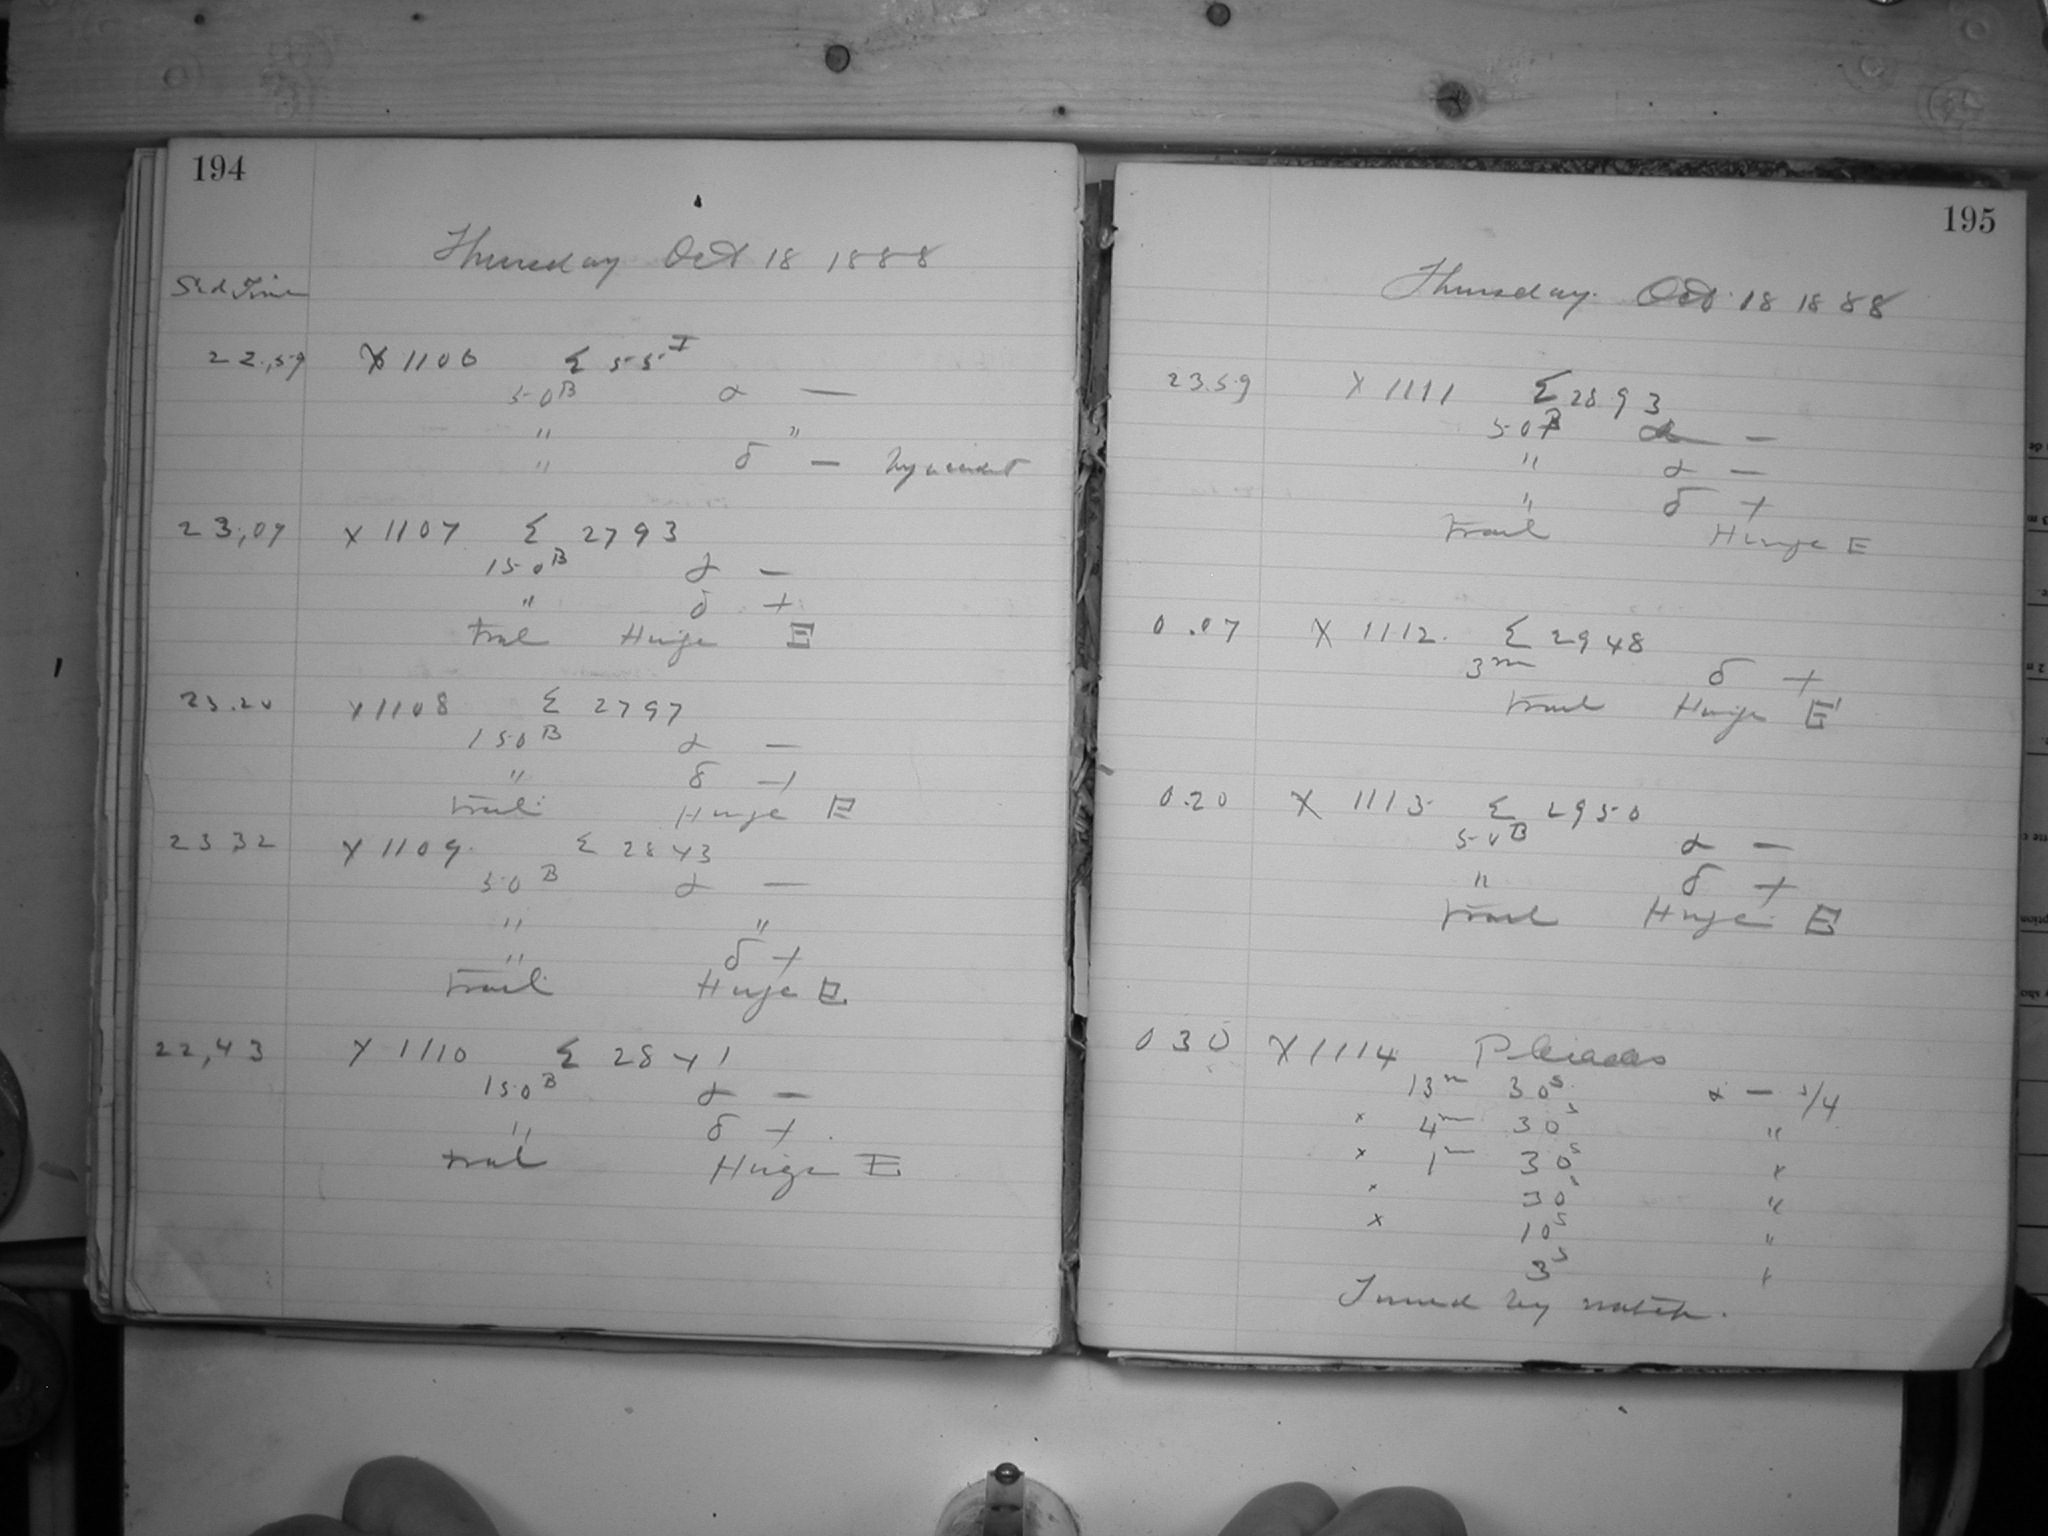 194
Thursday Oct 18 1888
Sid Time
22,59 X 1106 Σ 55 I
50B α —
" "
" δ — by accident
23,07 X 1107 Σ 2793
150B α —
" δ +
trail Hinge E
23.20 X 1108 Σ 2797
150B α —
" δ +
trail Hinge E
23 32 X 1109. Σ 2843
50B α —
" "
" δ +
trail Hinge E
22,43 X 1110 Σ 2841
150B α —
" δ +
trail Hinge E
195
Thursday. Oct. 18 1888
23.59 X 1111 Σ 2893
50B —
" α —
" δ +
trail Hinge E
0.07 X 1112. Σ 2948
3m δ +
trail Hinge E
0.20 X 1113 Σ 2950
50B α —
" δ +
trail Hinge E
0 30 X 1114 Pleiades
13m 30s α — 3/4
x 4m 30s "
x 1m 30s "
x 30s "
x 10s "
3s "
Timed by watch.